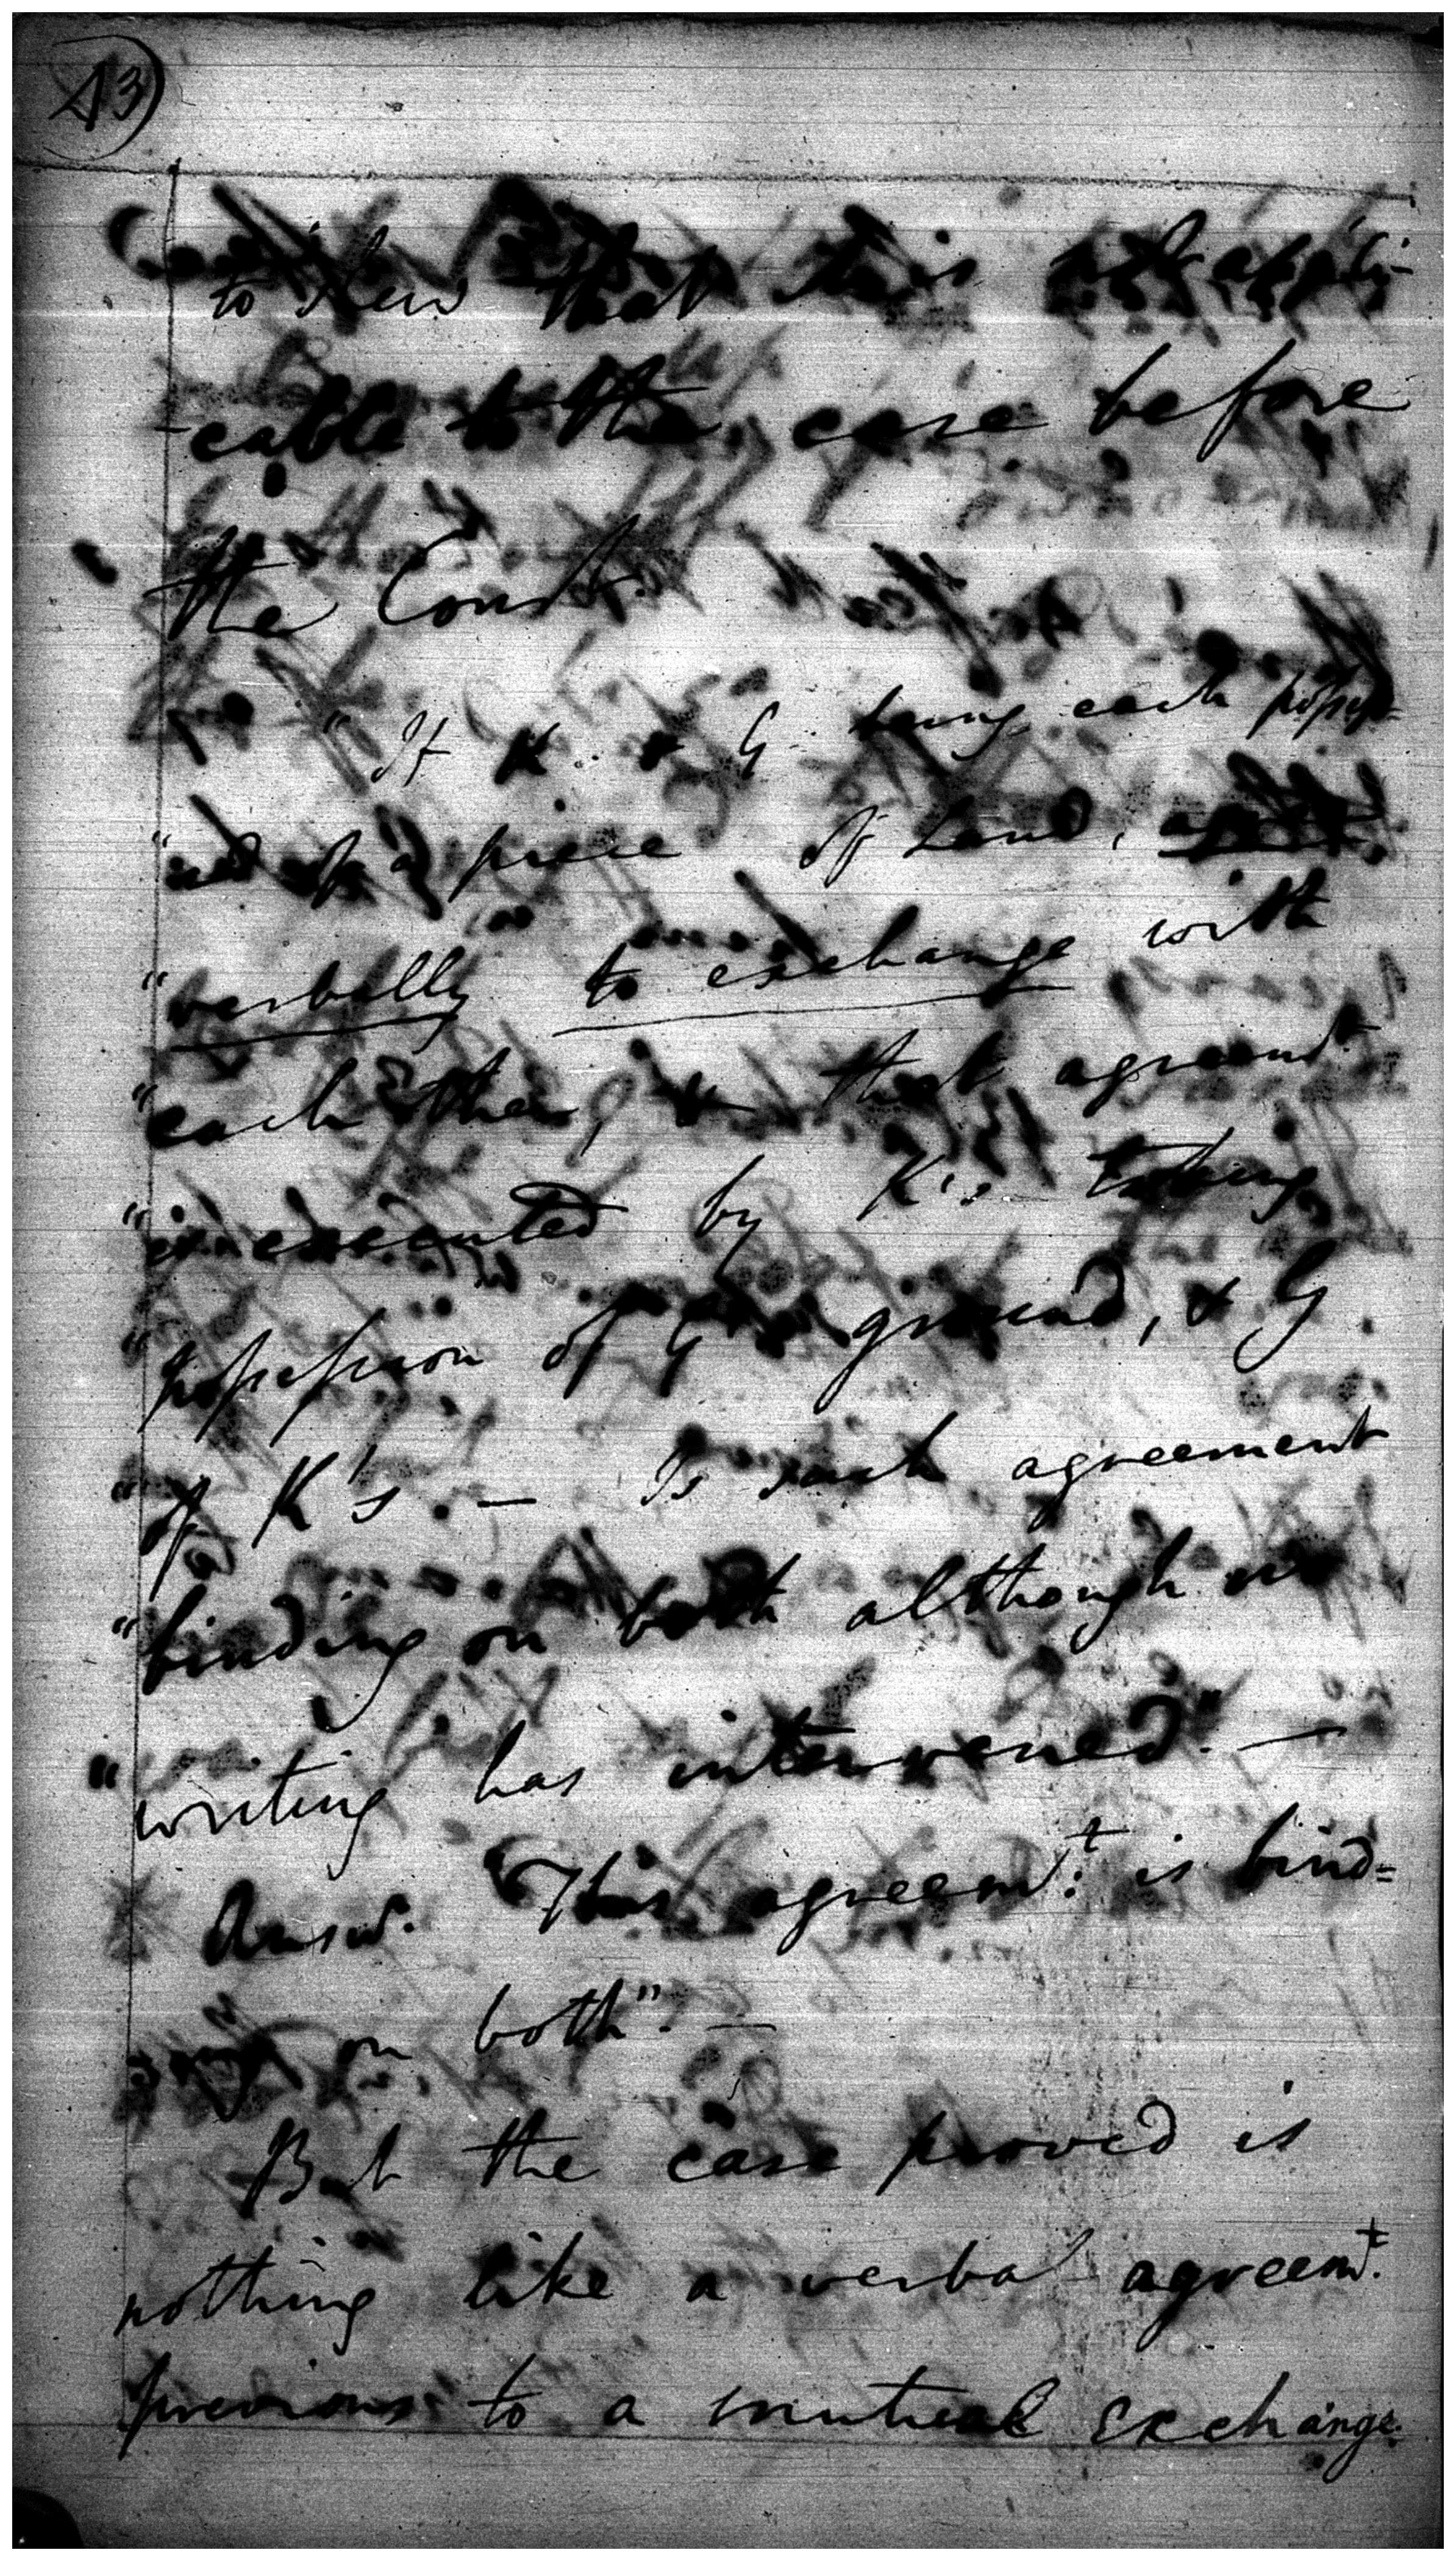 43
to shew that this is not appli-
-cable to the case before
the Court.
"If K. & G. being each possess-
"ed of a piece of Land, agree
"verbally to exchange with
"each other, & that agreemt.
"is executed by K's taking
"possession of G's ground, & G
"of K's. — Is such agreement
"binding on both although no
"writing has intervened." —
Answ. "This agreemt. is bind=
ing on both". —
But the case proved is
nothing like a verbal agreemt.
previous to a mutual exchange.